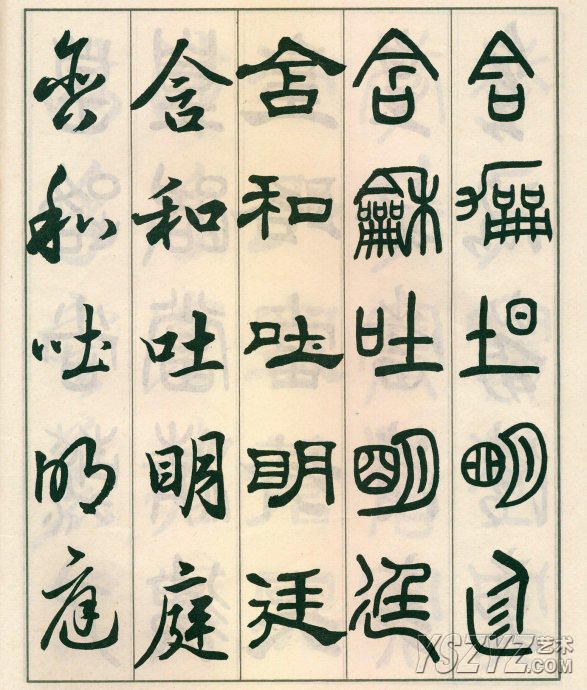 含明
含龢吐明廷
含和吐明廷
含和吐明庭
含和吐明庭
YSZYZ艺术